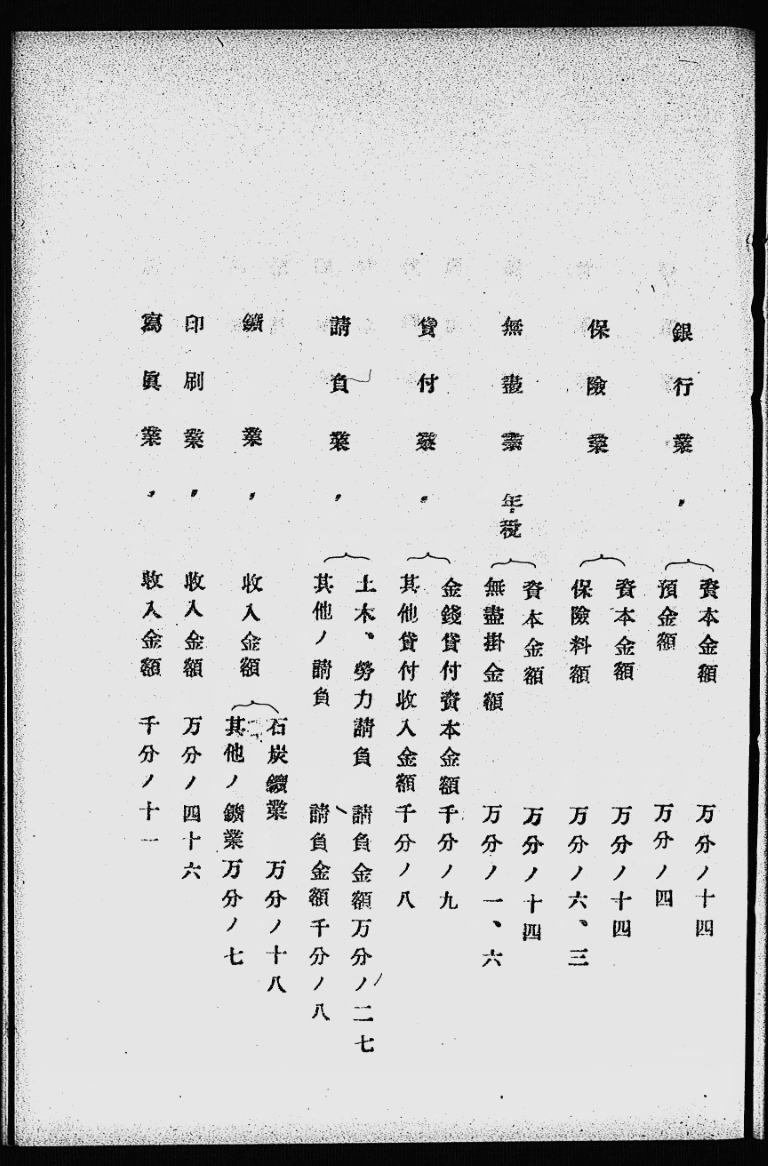 銀行業 〃 資本金額 万分ノ十四
預金額 万分ノ四
保險業 資本金額 万分ノ十四
保險料額 万分ノ六、三
無盡業 年税 資本金額 万分ノ十四
無盡掛金額 万分ノ一、六
貸付業 〃 金錢貸付資本金額 千分ノ九
其他貸付收入金額 千分ノ八
請負業 〃 土木、勞力請負 請負金額万分ノ二七
其他ノ請負 請負金額千分ノ八
鑛業 〃 收入金額 石炭鑛業 万分ノ十八
其他ノ鑛業 万分ノ七
印刷業 〃 收入金額 万分ノ四十六
寫眞業 〃 收入金額 千分ノ十一